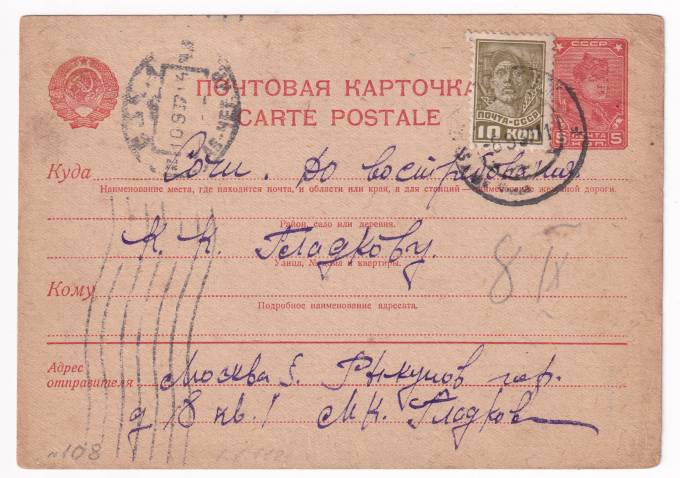 СССР
ПОЧТОВАЯ КАРТОЧКА
CARTE POSTALE
ПОЧТА-СССР
10 КОП
ПОЧТА
5
10 9 37
Куда Сочи. До востребования
Наименование места, где находится почта, и области или края, а для станций — наименование железной дороги.
Район, село или деревня.
К. К. Гладкову.
Улица, № дома и квартиры.
8 IX
Кому
Подробное наименование адресата.
Адрес
отправителя Москва 5. Рыкунов пер.
д 8 кв. 1 М К. Гладков
№108